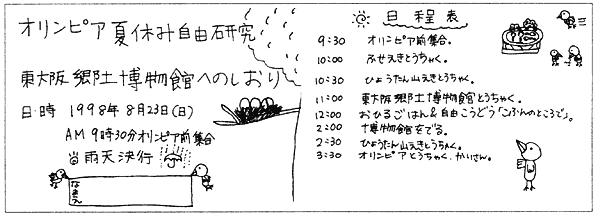 オリンピア夏休み自由研究
東大阪郷土博物館へのしおり
日・時 1998年8月23日(日)
AM9時30分オリンピア前集合
当雨天決行
なまえ
日程表
9:30 オリンピア前集合。
10:00 ふせえきとうちゃく。
10:30 ひょうたん山えきとうちゃく。
11:00 東大阪郷土博物館とうちゃく。
12:00 おひるごはん&自由こうどう「こふんのところで」。
2:00 博物館をでる。
2:30 ひょうたん山えきとうちゃく。
3:30 オリンピアとうちゃく、かいさん。